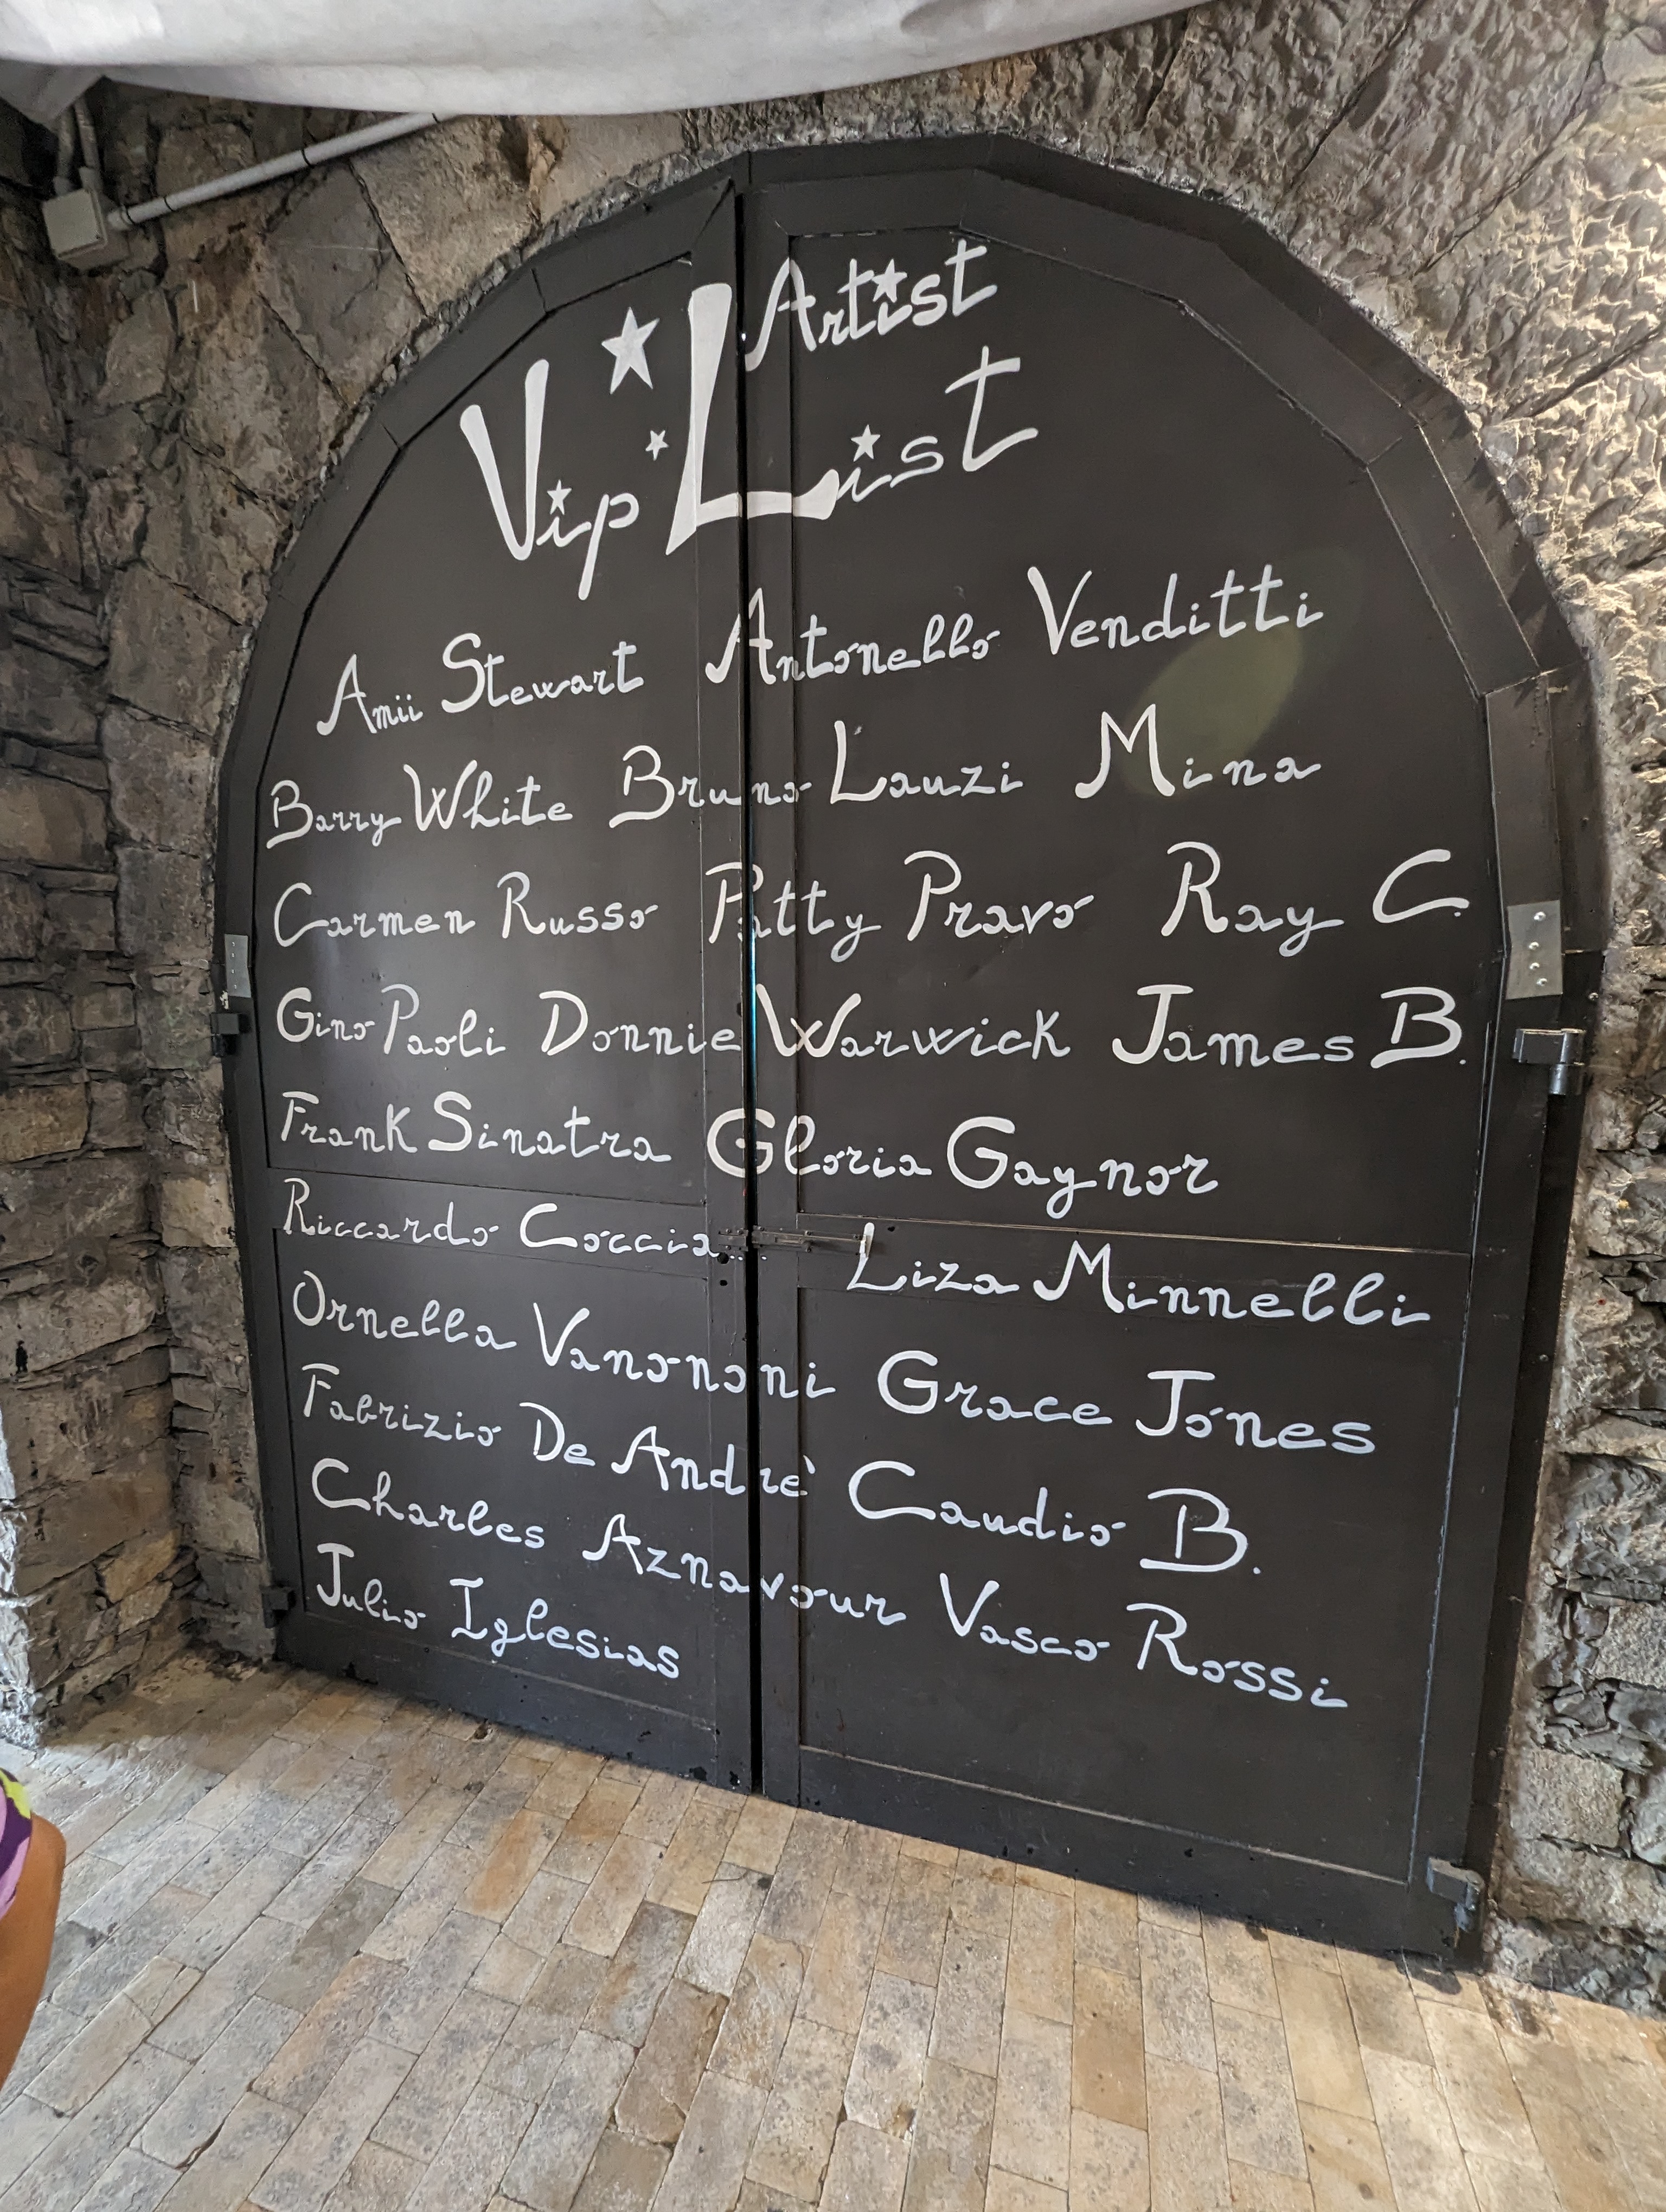 Artist
Vip List
Amii Stewart Antonello Venditti
Barry White Bruno Lauzi Mina
Carmen Russo Patty Pravo Ray C.
Gino Paoli Donnie Warwick James B.
Frank Sinatra Gloria Gaynor
Riccardo Cocciante Liza Minnelli
Ornella Vanononi Grace Jones
Fabrizio De Andrè Caudio B.
Charles Aznavour Vasco Rossi
Julio Iglesias